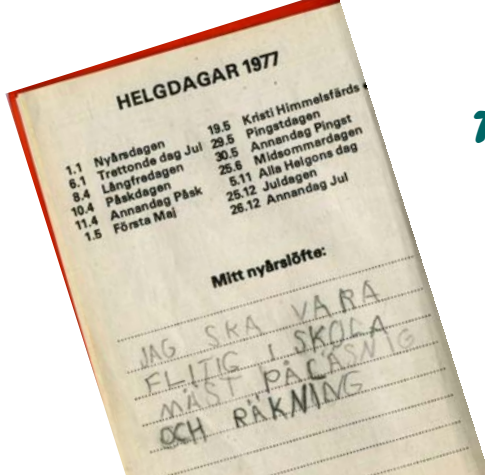 HELGDAGAR 1977
1.1 Nyårsdagen
6.1 Trettonde dag Jul
8.4 Långfredagen
10.4 Påskdagen
11.4 Annandag Påsk
1.5 Första Maj
19.5 Kristi Himmelsfärds
29.5 Pingstdagen
30.5 Annandag Pingst
25.6 Midsommardagen
5.11 Alla Helgons dag
25.12 Juldagen
26.12 Annandag Jul
Mitt nyårslöfte:
JAG SKA VARA
FLITIG I SKOLA
MÄST PÅ LÄSNIG
OCH RÄKNING